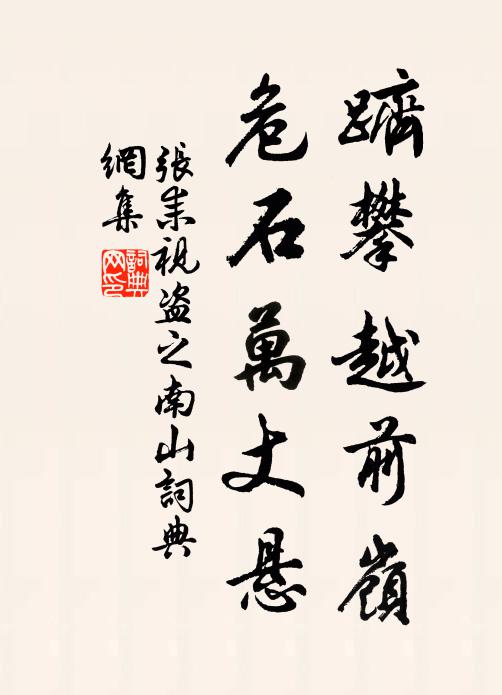 躋攀越前嶺
危石萬丈悬
張耒視盜之南山詞典
網集
詞典
网印